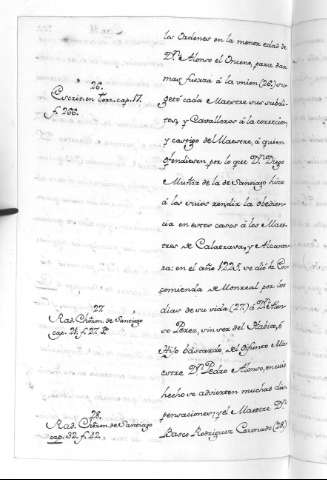 las Ordenes en la menor edad de
Dn. Alonso el Onceno, para dar
mas fuerza à la union (26.) su-
getò cada Maestre sus subdi-
tos, y Cavalleros à la correccion,
y castigo del Maestre, à quien
ofendiesen, por lo que Dn. Diego
Muñiz de la de Santiago hizo
à los suyos rendir la obedien-
cia en estos casos à los Maes-
tres de Calatrava, y Alcanta-
ra: en el año 1226, se diò la En-
comienda de Monreal por los
dias de su vida (27.) à Dn. Alon-
Perez, vin vez del Habito, è
Hijo bastardo, del Maestre
Dn. Pedro Alonso, en cuio
hecho se advierten muchas dis-
pensaciones; y el Maestre Dn.
Vasco Rodriguez Coronado (28.)
26.
cap. 17.
f. 266.
27.
Rad. Chron. de Santiago
cap. 21. f. 27.
28.
Rad. Chron. de Santiago
cap. 32. f. 42.